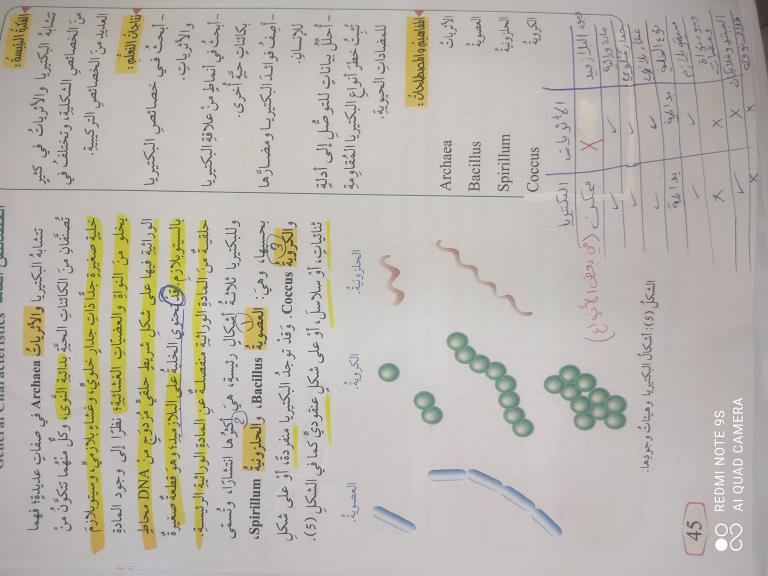 General Characteristics الخصائص العامة
تتشابهُ البكتيريا والأثريات Archaea في صفاتٍ عديدةٍ؛ فهما
تُصنَّفانِ منَ الكائناتِ الحيّةِ بدائيةِ النَّوى، وكلٌّ منهُما تتكوَّنُ منْ
خليةٍ صغيرةٍ جدًّا ذاتِ جدارٍ خلويٍّ، وغشاءٍ بلازميٍّ، وسيتوبلازمٍ
يخلو منَ النواةِ والعضيّاتِ الغشائيةِ؛ نظرًا إلى وجودِ المادةِ
الوراثيةِ فيها على شكلِ شريطٍ حلقيٍّ مُزدوَجٍ منْ DNA محاطٍ
بالسيتوبلازمِ. وقدْ تحتوي الخليةُ على البلازميد؛ وهوَ قطعةٌ صغيرةٌ
حلقيةٌ منَ المادةِ الوراثيةِ منفصلةٌ عنِ المادةِ الوراثيةِ الرئيسةِ.
وللبكتيريا ثلاثةُ أشكالٍ رئيسةٍ، هيَ أكثرُها انتشارًا، وتُسمّى
بحسبِها، وهيَ: العصويةُ Bacillus، والحلزونيةُ Spirillum،
والكرويةُ Coccus. وقدْ توجدُ البكتيريا منفردةً، أوْ على شكلِ
ثنائياتٍ، أوْ سلاسلَ، أوْ على شكلٍ عنقوديٍّ كما في الشكلِ (5).
الحلزونيةُ.
الكرويةُ.
العصويةُ.
الشكلُ (5): أشكالُ البكتيريا وهيئاتُ وجودِها.
45
الفكرةُ الرئيسةُ:
تتشابهُ البكتيريا والأثرياتُ في كثيرٍ
منَ الخصائصِ الشكليةِ، وتختلفُ في
العديدِ منَ الخصائصِ التركيبيةِ.
نتاجاتُ التعلُّمِ:
- أبحثُ في خصائصِ البكتيريا
والأثرياتِ.
- أبحثُ في أنماطٍ منْ علاقةِ البكتيريا
بكائناتٍ حيّةٍ أُخرى.
- أَصِفُ فوائدَ البكتيريا ومضارَّها
للإنسانِ.
- أُحلِّلُ بياناتٍ للتوصُّلِ إلى أدلةٍ
تُثبِتُ خطرَ أنواعِ البكتيريا المُقاوِمةِ
للمضاداتِ الحيويةِ.
المفاهيمُ والمصطلحاتُ:
الأثرياتُ Archaea
العصويةُ Bacillus
الحلزونيةُ Spirillum
الكرويةُ Coccus
الأثريات
البكتيريا
وجود البلازميد X ممكن (في بعض الأنواع)
مادة وراثية ✓ ✓
جدار خلوي ✓ ✓
غشاء بلازمي ✓ ✓
نوع الخلية بدائية بدائية
سيتوبلازم ✓ ✓
X X
X ✓
X X
REDMI NOTE 9S
AI QUAD CAMERA